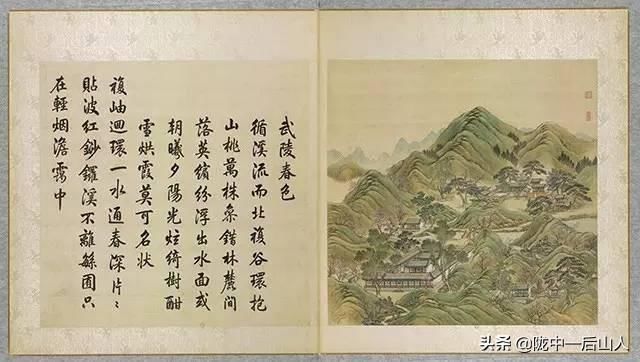 武陵春色
循溪流而北複谷環抱
山桃萬株叅錯林麓間
落英繽紛浮出水面或
朝曦夕陽光炫綺樹酣
雪烘霞莫可名狀
複岫迴環一水通春深片〻
貼波紅鈔鑼溪不離繇囿只
在輕烟澹靄中
头条 @陇中一后山人